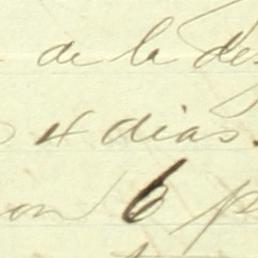 de la des
4 dias.
on 6 p